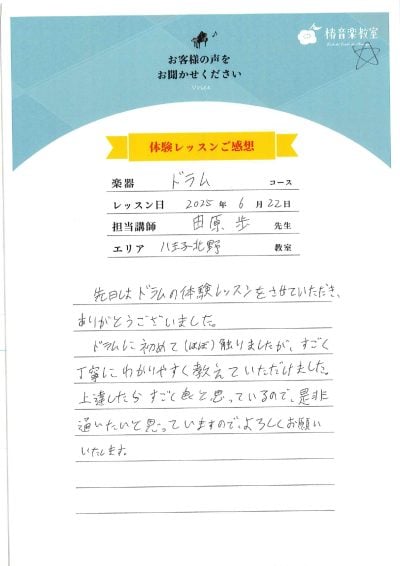 椿音楽教室
お客様の声を
お聞かせください
VOICE
体験レッスンご感想
楽器 ドラム コース
レッスン日 2025年 6月22日
担当講師 由原 歩 先生
エリア 八王子北野 教室
先日はドラムの体験レッスンをさせていただき、
ありがとうございました。
ドラムに初めて(ほぼ)触りましたが、すごく
丁寧にわかりやすく教えていただけました。
上達したらすごく良と思っているので、是非
通いたいと思っていますので、よろしくお願い
いたします。